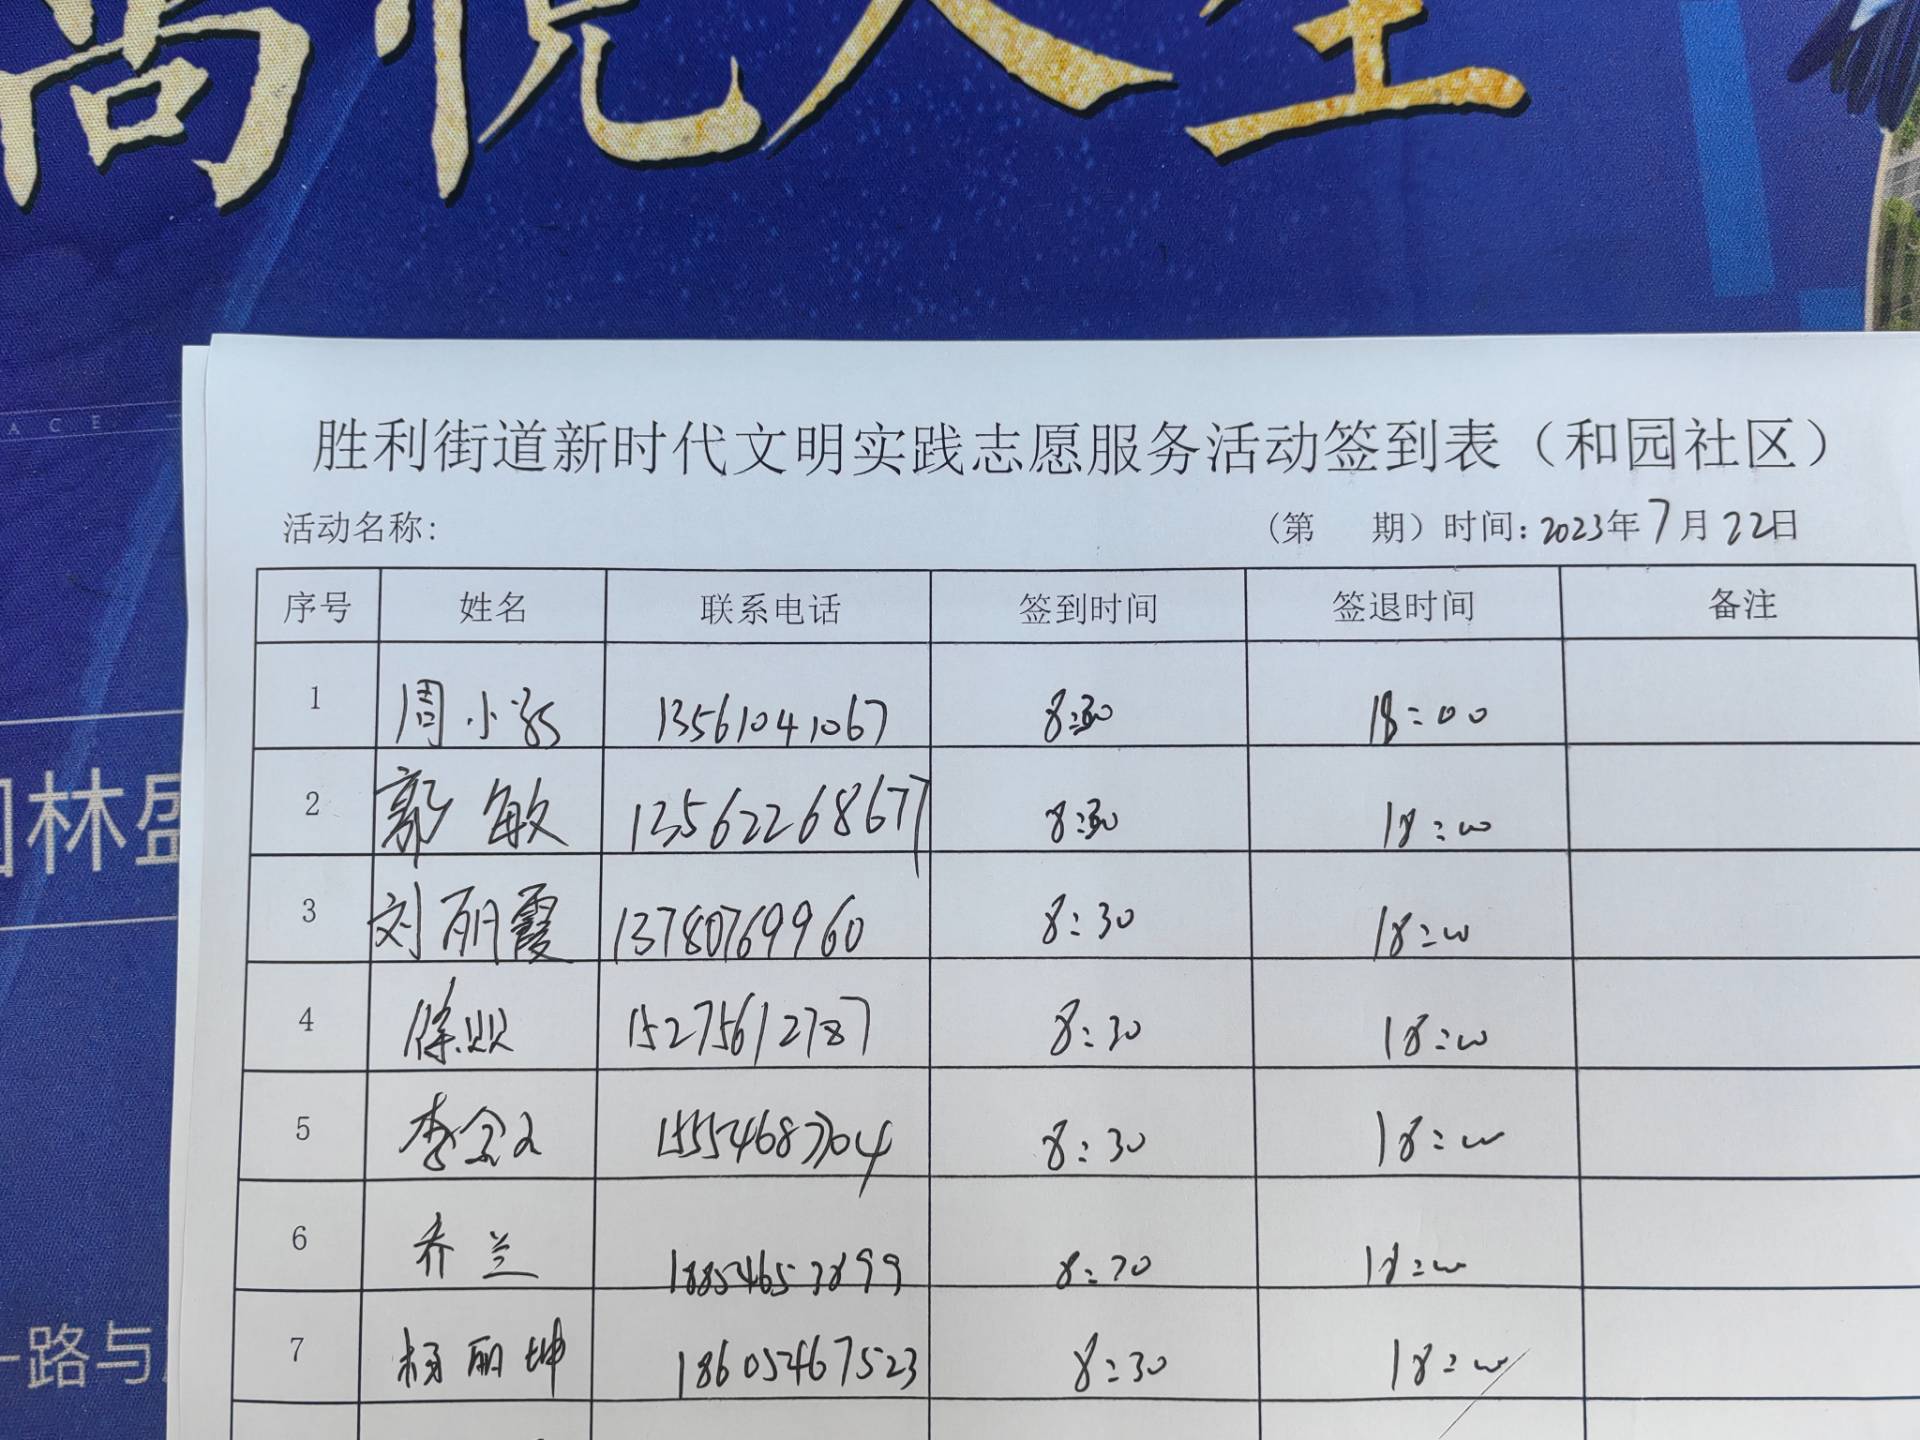 悦人生
ACE
林盛
一路与
胜利街道新时代文明实践志愿服务活动签到表（和园社区）
活动名称：
（第 期）时间：2023年7月22日
序号 姓名 联系电话 签到时间 签退时间 备注
1 周小 13561041067 8:30 18:00
2 郭敏 13562268677 8:30 18:00
3 刘丽霞 13780769960 8:30 18:00
4 徐 15275612787 8:30 18:00
5 李 15554687704 8:30 18:00
6 乔兰 18854653899 8:30 18:00
7 杨丽坤 18605467523 8:30 18:00